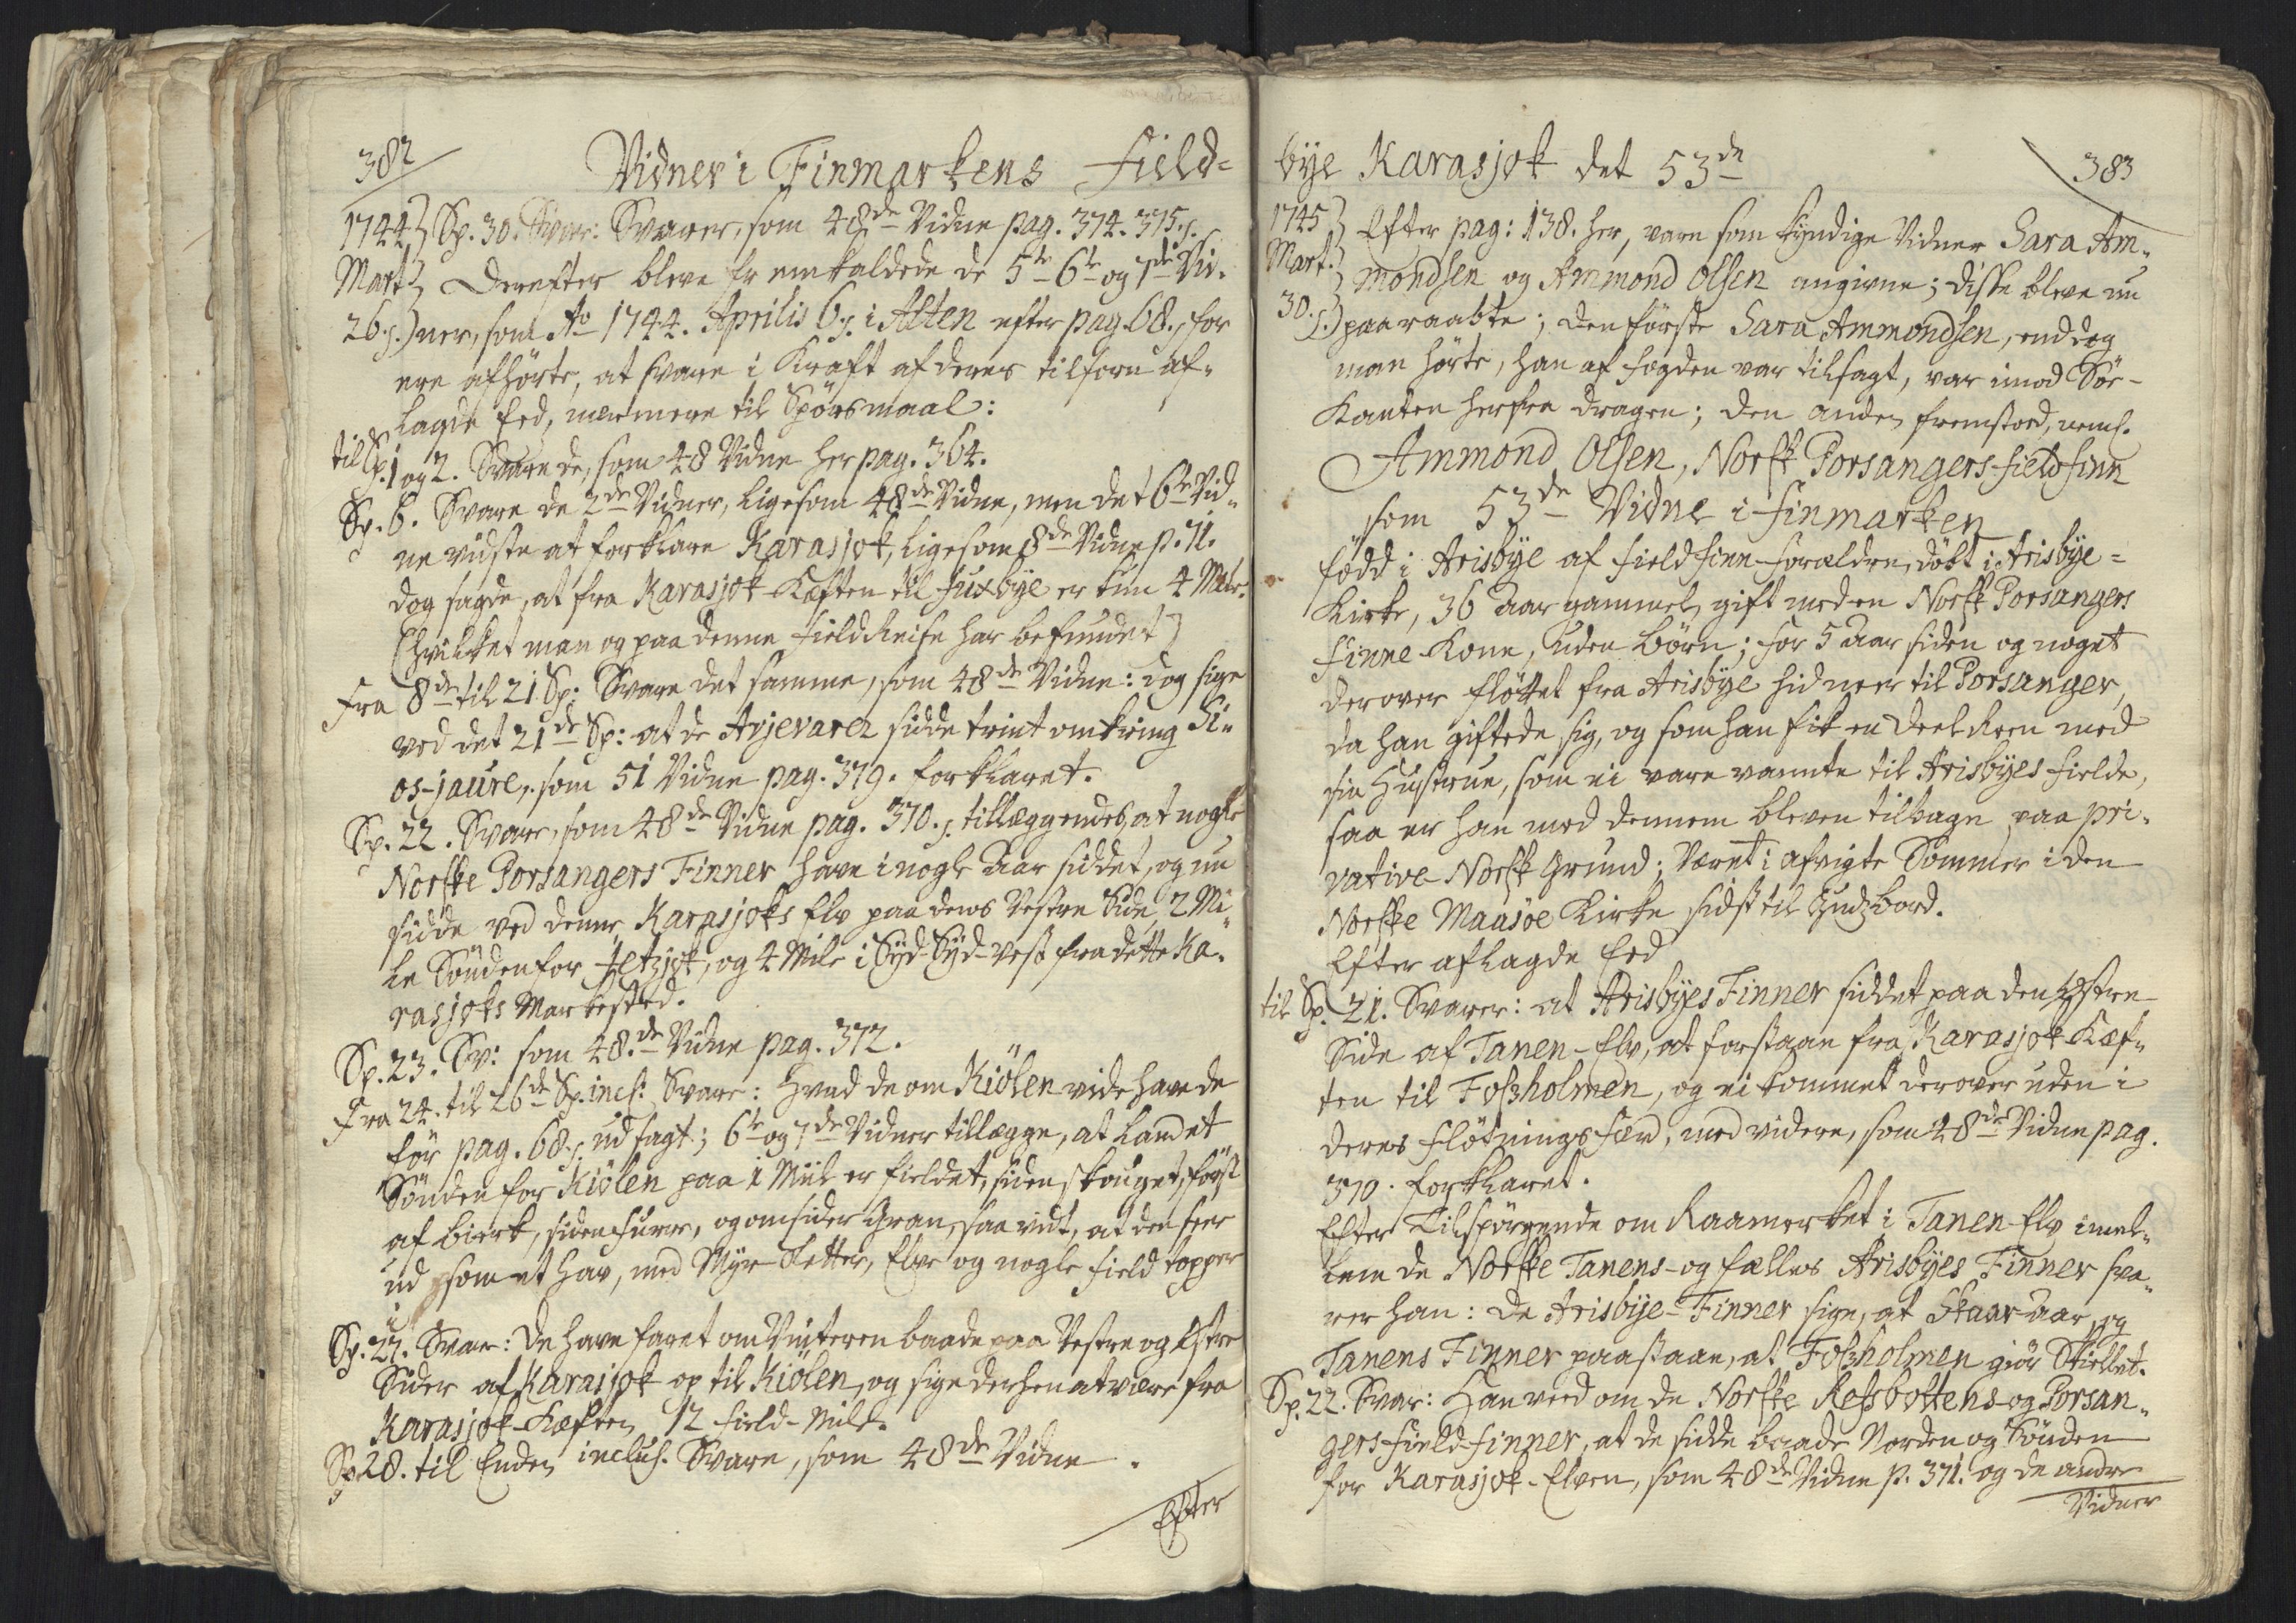 382
Vidner i Finmarkens Field-
1744 Sp. 30. Svar: Svarer, som 48de Vidne pag. 374. 375.
Mart Derefter bleve fremkaldede de 5te 6te og 7de Vid-
26. ner, som Ao 1744. Aprilis 6. i Alten efter pag. 68. for
ere afhörte, at svare i Kraft af deres tilforn af-
lagde Eed, nermere til Spörsmaal:
til Sp. 1 og 2. Svare de, som 48 Vidne her pag. 364.
Sp. 6. Svare de 2de Vidner, ligesom 48de Vidne, men det 6te Vid-
ne vidste at forklare Karasjok, ligesom 8de Vidne p. 71.
dog sagde, at fra Karasjok-Kæften til Juxbÿe er kun 4 Mile.
(hvilket man og paa denne Field Reise har befundet)
Fra 8de til 21 Sp: Svare det samme, som 48de Vidne: dog sige
ved det 21de Sp: at de Avjevarez sidde trint omkring Si-
os-jaure, som 51 Vidne pag. 379. forklaret.
Sp. 22. Svare, som 48de Vidne pag. 370., tillæggendes, at nogle
Norske Porsangers Finner have i nogle Aar siddet, og nu
sidde ved denne Karasjoks Elv paa dens Vestre Side, 2 Mi-
le Sönden for Jetzjok, og 4 Mile i Sÿd-Sÿd-Vest fra dette Ka-
rasjoks Markested.
Sp. 23. Sv: som 48.de Vidne pag. 372.
Fra 24. til 26de Sp. incl: Svare: Hvad de om Kiölen vide have de
för pag. 68. udsagt; 6te og 7de Vidner tillægge, at Landet
Sönden for Kiölen paa 1 Miil er fieldet, siden skouget, först
af birk, siden Furre, og omsider Gran, saa vidt, at den seer
ud som et Hav, med Myr-Sletter, Elve og nogle Field topper
i
Sp. 27. Svar: De have faret om Vinteren baade paa Vestre og Östre
Sider af Karasjok op til Kiölen, og sige derhen at være fra
Karasjok-Kæften 12 Field-Mile.
Sp 28. til Enden inclus. Svare, som 48de Vidne.
Efter
bÿe Karasjok det 53de
383
1745 Efter pag: 138. her, vare som kyndige Vidner Sara Am-
Mart. mondsen og Ammond Olsen angivne; disse bleve nu
30. paaraabte; den förste Sara Ammondsen, end dog
man hörte, han af Fogden var tilsagt, var imod Sör-
Kanten herfra dragen; den anden fremstod, neml.
Ammond Olsen, Norsk Porsangers-fieldfinn
som 53de Vidne i Finmarken
född i Arisbÿe af Fieldfinne-Forældre, döbt i Arisbÿe-
Kirke, 36 Aar gammel, gift med en Norsk Porsangers
Finne Kone, uden börn; for 5 Aar siden og noget
derover flöttet fra Arisbÿe hid ner til Porsanger,
da han giftede sig, og som han fik en Deel Reen med
sin Hustrue, som ei vare vannte til Arisbÿes Fielde,
saa er han med dennem bleven tilbage paa pri-
vative Norsk Grund; Været i afvigte Sommer i den
Norske Maasöe Kirke sidst til Gudz bord.
Efter aflagde Eed
til Sp. 21. Svarer: at Arisbÿes Finner siddet paa den Östre
Side af Tanen-Elv, at forstaae fra Karasjok-Kæf-
ten til Fosholmen, og ei kommet derover uden i
deres Flötnings Færd, med videre, som 48de Vidne pag.
370. forklaret.
Efter Tilspörgende om Raamerket i Tanen-Elv imel-
lem de Norske Tanens- og fælles Arisbÿes Finner sva-
rer han: De Arisbÿe-Finner sige, at Skaar-aar, og
Tanens Finner paastaae, at Fosholmen giör Skiellet.
Sp. 22. Svar: Han veed om de Norske Refsbottens- og Porsan-
gers-Field-finner, at de sidde baade Norden og Sönden
for Karasjok-Elven, som 48de Vidne p. 371. og de andre
Vidner